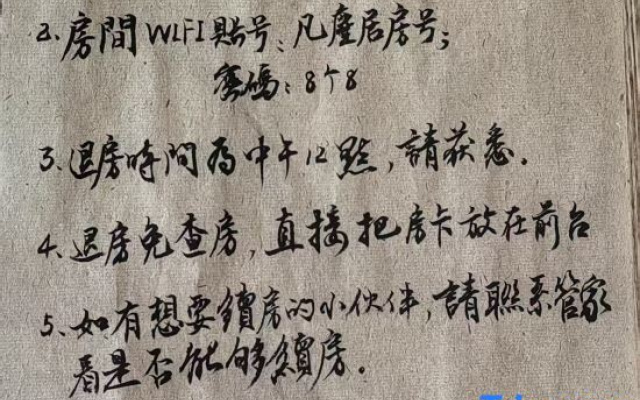 2、房間WIFI賬号:凡塵居房号;
密碼:8个8
3、退房時间為中午12點,請获悉.
4、退房免查房,直接把房卡放在前台
5、如有想要續房的小伙伴,請聯系管家
看是否能够續房.